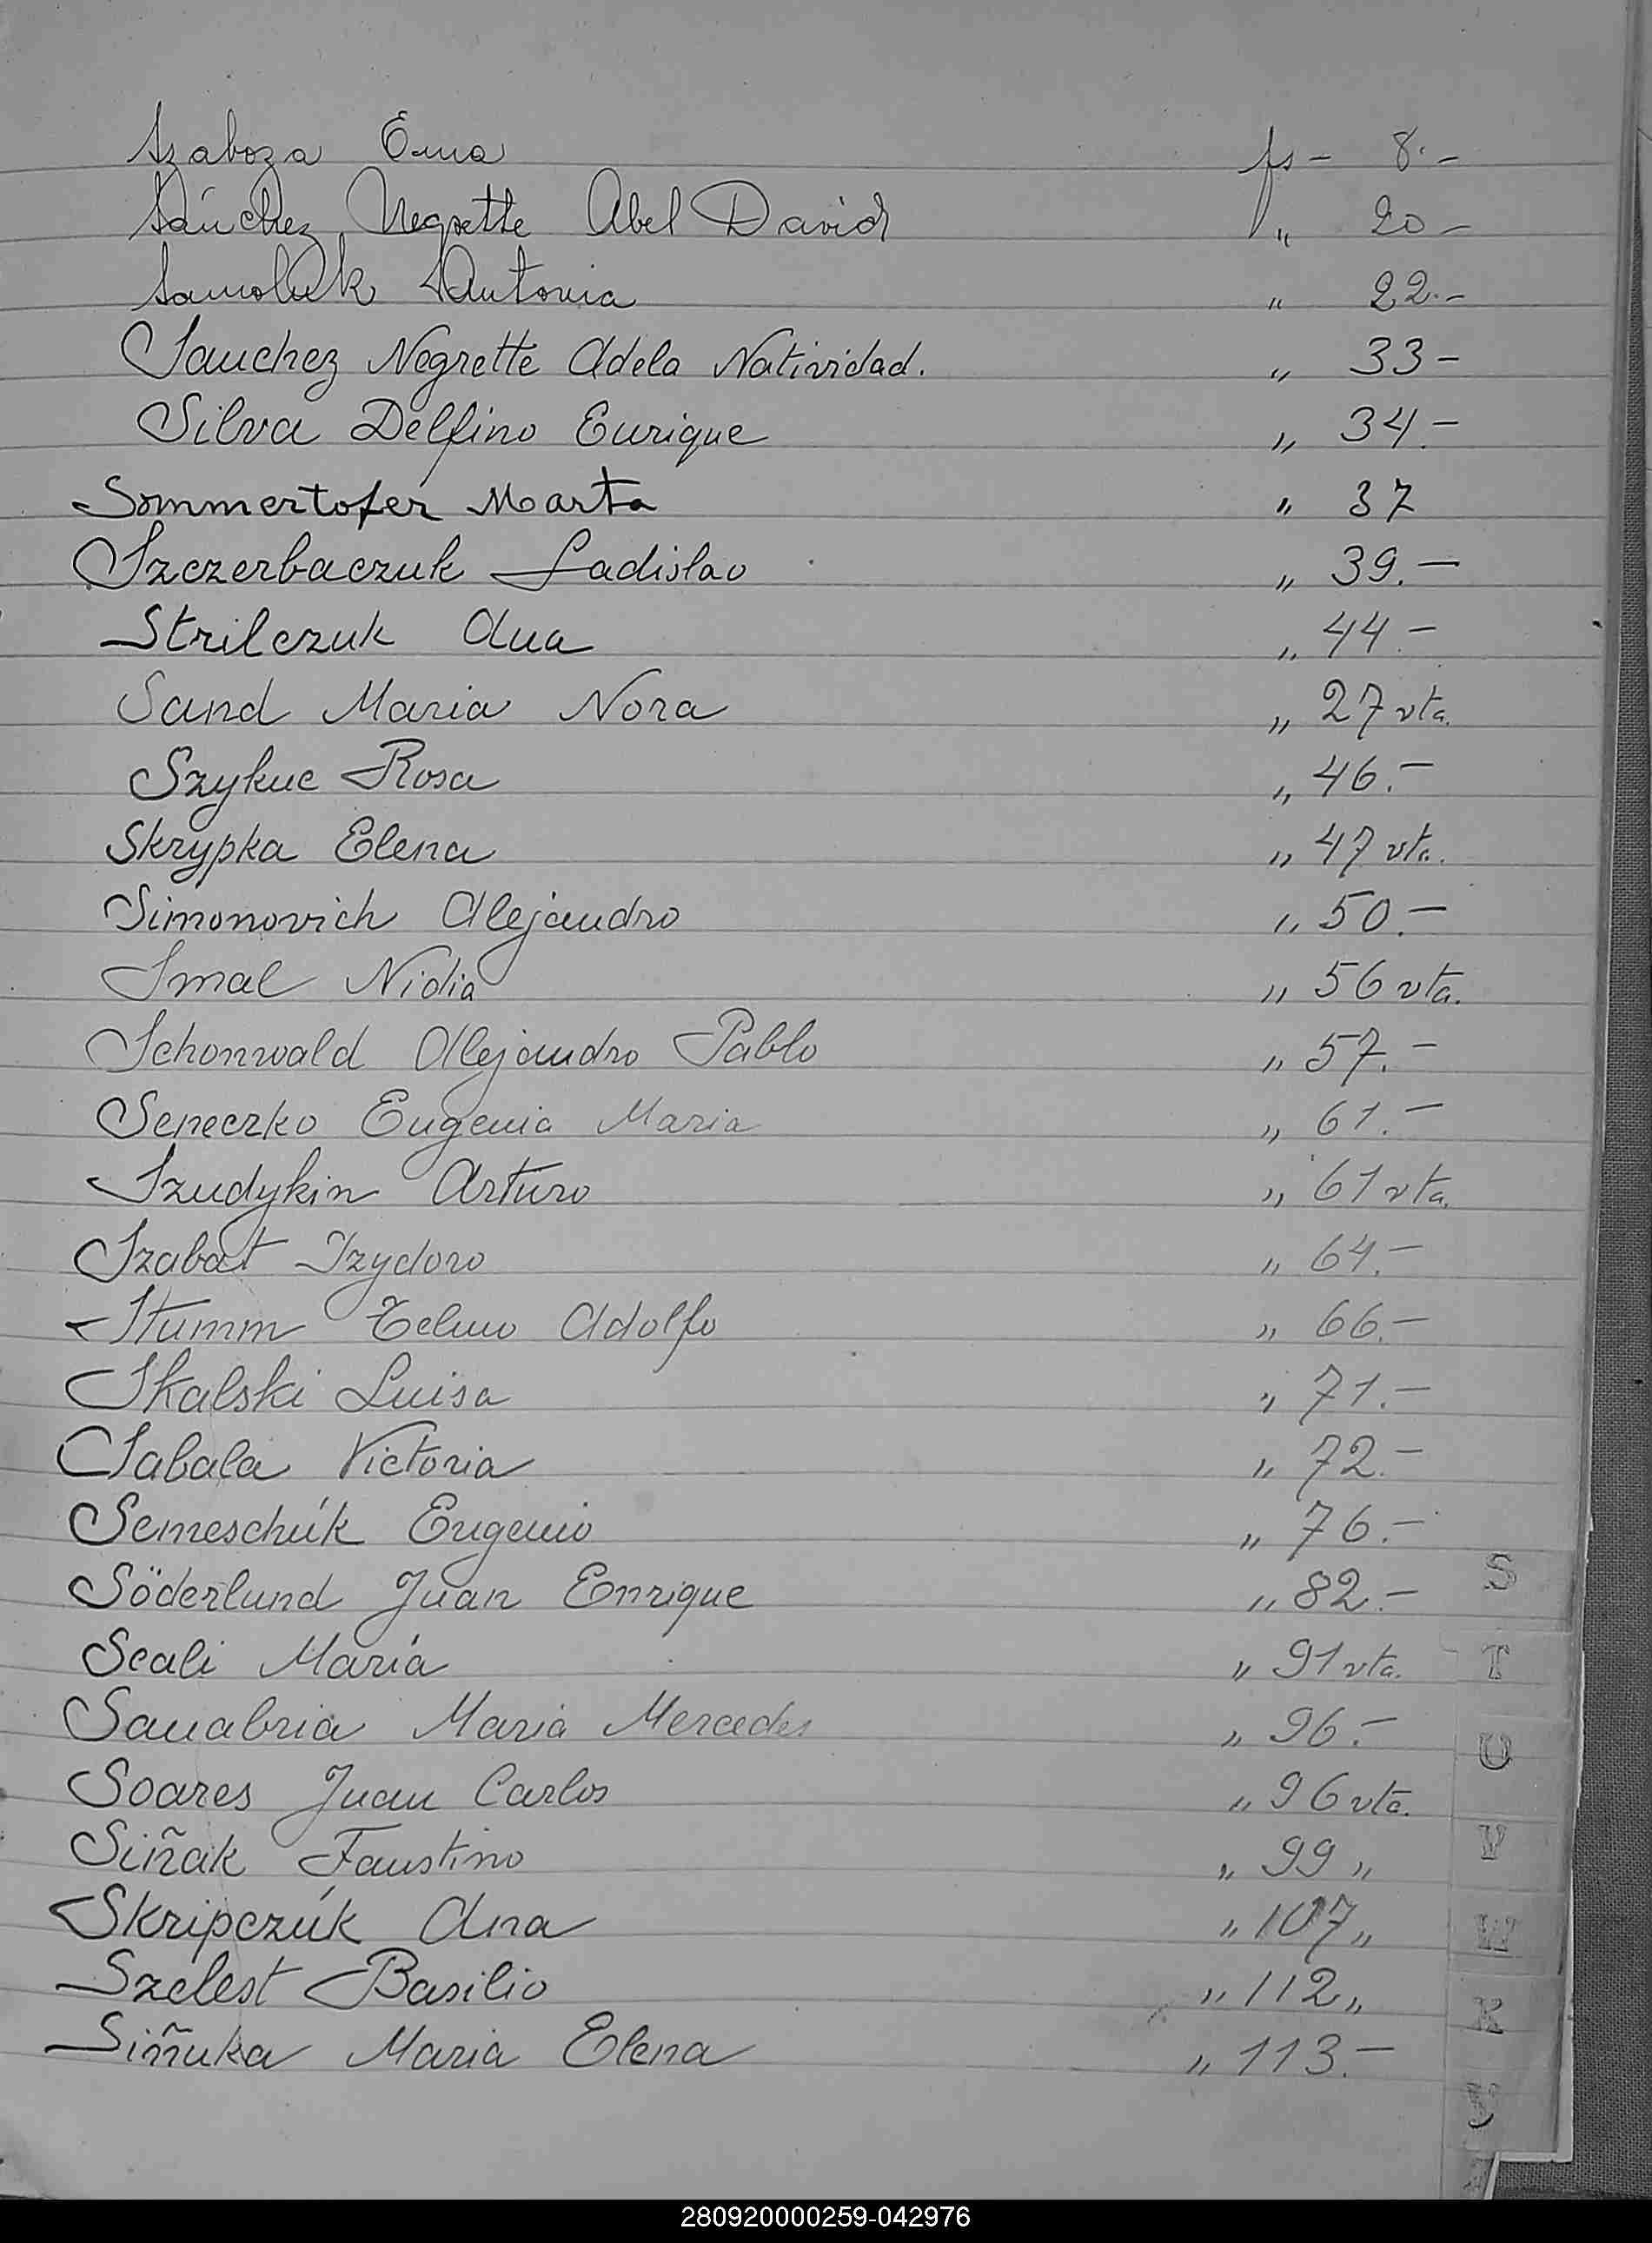 Szaboza Ema fs - 8.-
Sánchez Negrette Abel David " 20 -
Samoluk Antonia " 22.-
Sanchez Negrette Adela Natividad. " 33 -
Silva Delfino Enrique " 34.-
Sommertofer Marta " 37
Szczerbaczuk Ladislao " 39.-
Strilczuk Ana " 44 -
Sand Maria Nora " 27 vta.
Szykuc Rosa " 46.-
Skrypka Elena " 47 vta.
Simonovich Alejandro " 50.-
Smal Nidia " 56 vta.
Schonwald Alejandro Pablo " 57.-
Seneczko Eugenia Maria " 61.-
Szudykin Arturo " 61 vta.
Szabat Izydoro " 64.-
Stumm Telmo Adolfo " 66.-
Skalski Luisa " 71.-
Sabala Victoria " 72.-
Semeschúk Eugenio " 76.-
Söderlund Juan Enrique " 82.-
Scali María " 91 vta.
Sanabria Maria Mercedes " 96.-
Soares Juan Carlos " 96 vta.
Siñak Faustino " 99 "
Skripczúk Ana " 107 "
Szelest Basilio " 112 "
Siñuka Maria Elena " 113.-
S
T
U
V
W
X
Y
280920000259-042976